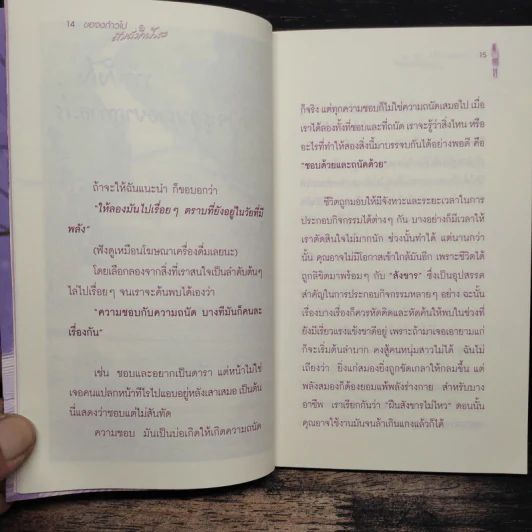 14 ขอจงก้าวไป
ถ้าจะให้ฉันแนะนำ ก็ขอบอกว่า
"ให้ลองมันไปเรื่อยๆ ตราบที่ยังอยู่ในวัยที่มี
พลัง"
(ฟังดูเหมือนโฆษณาเครื่องดื่มเลยนะ)
โดยเลือกลองจากสิ่งที่เราสนใจเป็นลำดับต้นๆ
ไล่ไปเรื่อยๆ จนเราจะค้นพบได้เองว่า
"ความชอบกับความถนัด บางทีมันก็คนละ
เรื่องกัน"
เช่น ชอบและอยากเป็นดารา แต่หน้าไม่ใช่
เจอคนแปลกหน้าทีไรไปแอบอยู่หลังเสาเสมอ เป็นต้น
นี่แสดงว่าชอบแต่ไม่สันทัด
ความชอบ มันเป็นบ่อเกิดให้เกิดความถนัด
15
ก็จริง แต่ทุกความชอบก็ไม่ใช่ความถนัดเสมอไป เมื่อ
เราได้ลองทั้งที่ชอบและที่ถนัด เราจะรู้ว่าสิ่งไหน หรือ
อะไรที่ทำให้สองสิ่งนี้มาบรรจบกันได้อย่างพอดี คือ
"ชอบด้วยและถนัดด้วย"
ชีวิตถูกมอบให้มีจังหวะและระยะเวลาในการ
ประกอบกิจกรรมได้ต่างๆ กัน บางอย่างก็มีเวลาให้
เราตัดสินใจไม่มากนัก ช่วงนั้นทำได้ แต่นานกว่า
นั้น คุณอาจไม่มีโอกาสเข้าใกล้มันอีก เพราะชีวิตได้
ถูกลิขิตมาพร้อมๆ กับ "สังขาร" ซึ่งเป็นอุปสรรค
สำคัญในการประกอบกิจกรรมหลายๆ อย่าง ฉะนั้น
เรื่องบางเรื่องก็ควรหัดคิดและหัดค้นให้พบในช่วงที่
ยังมีเรี่ยวแรงแข็งขาดีอยู่ เพราะถ้ามาเจอเอายามแก่
ก็จะเริ่มต้นลำบาก คงสู้คนหนุ่มสาวไม่ได้ ฉันไม่
เถียงว่า ยิ่งแก่สมองยิ่งถูกขัดเกลาให้กลมขึ้น แต่
พลังสมองก็ต้องยอมแพ้พลังร่างกาย สำหรับบาง
อาชีพ เราเรียกกันว่า "ฝืนสังขารไม่ไหว" ตอนนั้น
คุณอาจใช้งานมันจนล้าเกินแกงแล้วก็ได้